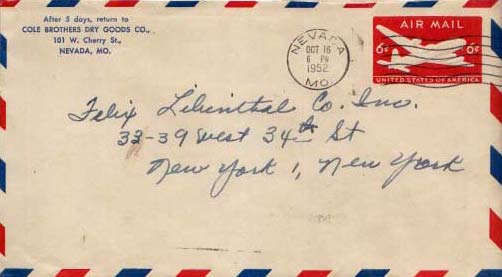 After 5 days, return to
COLE BROTHERS DRY GOODS CO.,
101 W. Cherry St.,
NEVADA, MO.
NEVADA
OCT 16
6 PM
1952
MO.
AIR MAIL
6¢ 6¢
UNITED STATES OF AMERICA
Felix Lilienthal Co. Inc.
33-39 West 34th St
New York 1, New York